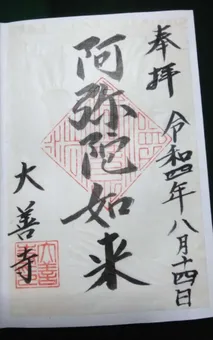 奉拝 令和四年八月十四日
阿弥陀如来
大善寺
大善寺